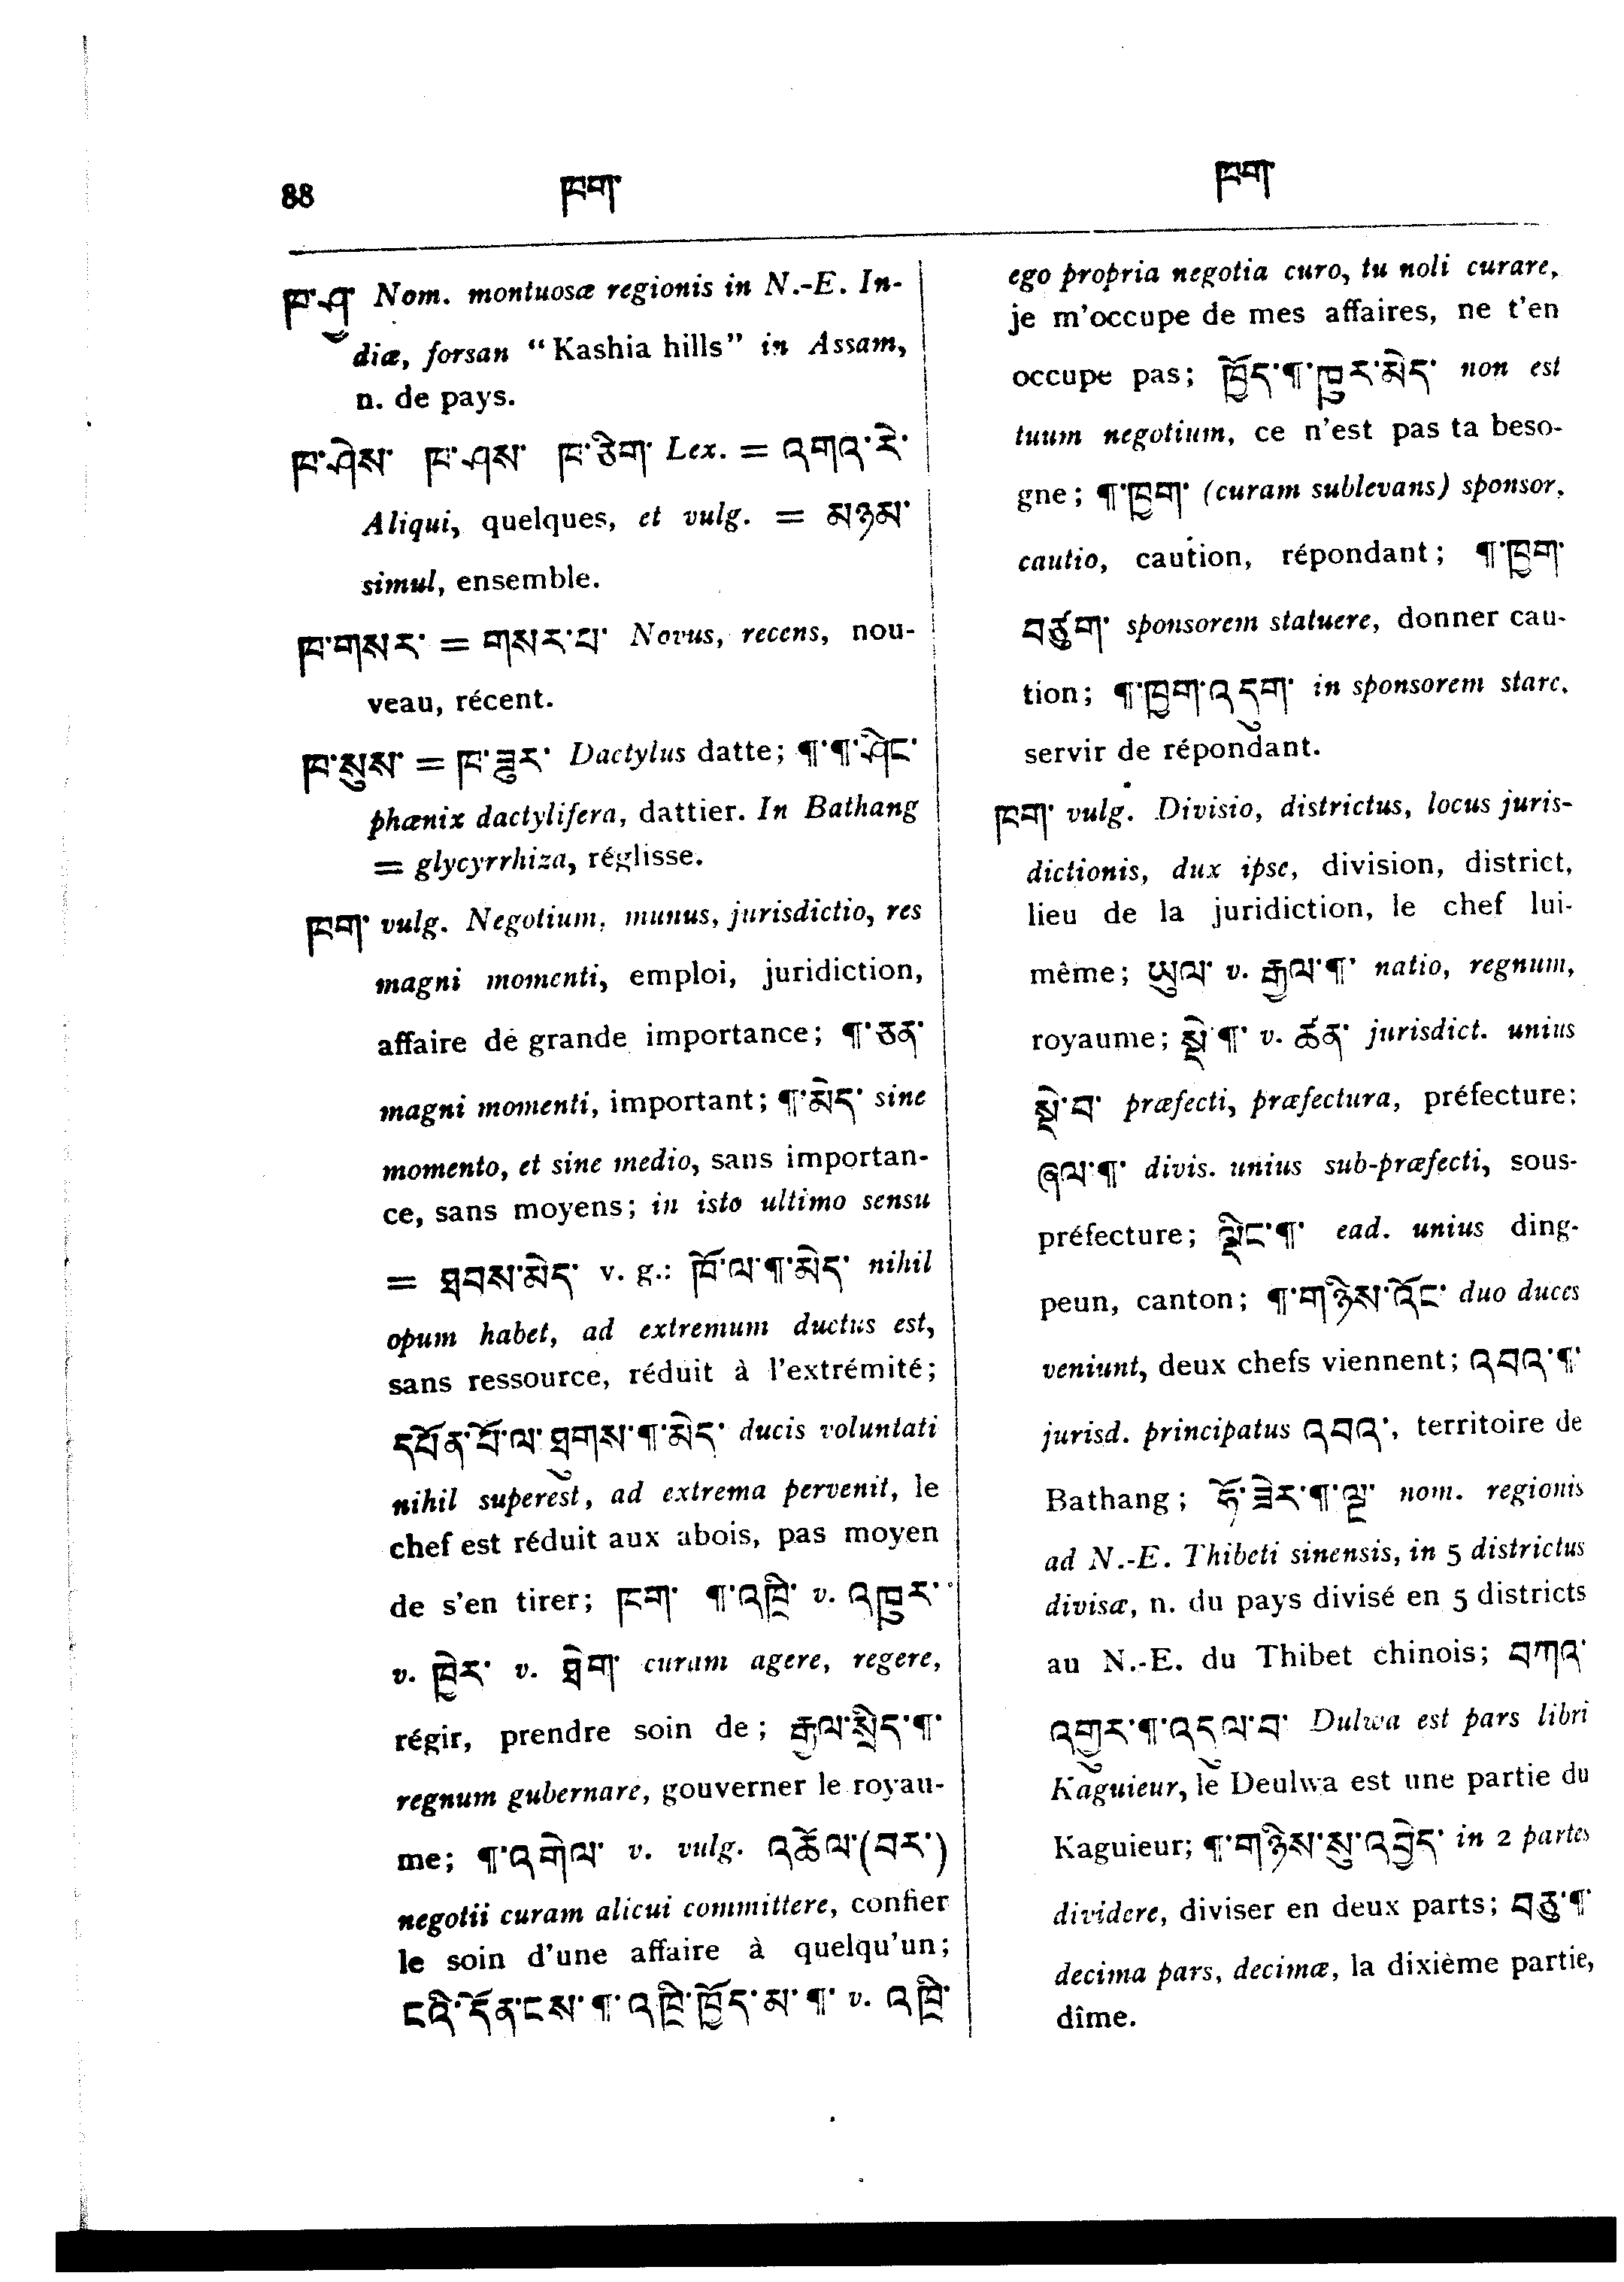 88 ཁག་ ཁག་
ཁ་ཤུ Nom. montuosæ regionis in N.-E. In-
diæ, forsan “Kashia hills” in Assam,
n. de pays.
ཁ་ཤེས་ ཁ་ཤས་ ཁ་ཅིག་ Lex. = འགའ་རེ་
Aliqui, quelques, et vulg. = མཉམ་
simul, ensemble.
ཁ་གསར་ = གསར་པ་ Novus, recens, nou-
veau, récent.
ཁ་སུས་ = ཁ་ཟུར་ Dactylus datte; ¶་¶་ཤིང་
phœnix dactylifera, dattier. In Bathang
= glycyrrhiza, réglisse.
ཁག་ vulg. Negotium, munus, jurisdictio, res
magni momenti, emploi, juridiction,
affaire de grande importance; ¶་ཅན་
magni momenti, important; ¶་མེད་ sine
momento, et sine medio, sans importan-
ce, sans moyens; in isto ultimo sensu
= ཐབས་མེད་ v. g.: ཁོ་ལ་¶་མེད་ nihil
opum habet, ad extremum ductus est,
sans ressource, réduit à l’extrémité;
དཔོན་པོ་ལ་ཐུགས་¶་མེད་ ducis voluntati
nihil superest, ad extrema pervenit, le
chef est réduit aux abois, pas moyen
de s’en tirer; ངག་ ¶་འཁྲི་ v. འཁུར་
v. ཁྱེར་ v. ཐེག་ curam agere, regere,
régir, prendre soin de; རྒྱལ་སྲིད་¶་
regnum gubernare, gouverner le royau-
me; ¶་འགེལ་ v. vulg. འཆོལ་(བར་)
negotii curam alicui committere, confier
le soin d’une affaire à quelqu’un;
ངའི་དོན་ངས་¶་འཁྲི་ཁྱོད་མ་¶་ v. འཁྲི་
ego propria negotia curo, tu noli curare,
je m’occupe de mes affaires, ne t’en
occupe pas; ཁྱོད་¶་ཁུར་མེད་ non est
tuum negotium, ce n’est pas ta beso-
gne; ¶་ཁྱག་ (curam sublevans) sponsor,
cautio, caution, répondant; ¶་ཁྱག་
བཙུག་ sponsorem statuere, donner cau-
tion; ¶་ཁྱག་འདུག་ in sponsorem stare,
servir de répondant.
ཁག་ vulg. Divisio, districtus, locus juris-
dictionis, dux ipse, division, district,
lieu de la juridiction, le chef lui-
même; ཡུལ་ v. རྒྱལ་¶་ natio, regnum,
royaume; སྡེ་¶་ v. ཚན་ jurisdict. unius
སྡེ་བ་ præfecti, præfectura, préfecture;
ཞལ་¶་ divis. unius sub-præfecti, sous-
préfecture; ལྡིང་¶་ ead. unius ding-
peun, canton; ¶་གཉིས་འོང་ duo duces
veniunt, deux chefs viennent; འབའ་¶་
jurisd. principatus འབའ་, territoire de
Bathang; ཧོ་ཟེར་¶་ལྔ་ nom. regionis
ad N.-E. Thibeti sinensis, in 5 districtus
divisæ, n. du pays divisé en 5 districts
au N.-E. du Thibet chinois; བཀའ་
འགྱུར་¶་འདུལ་བ་ Dulwa est pars libri
Kaguieur, le Deulwa est une partie du
Kaguieur; ¶་གཉིས་སུ་འབྱེད་ in 2 partes
dividere, diviser en deux parts; བཅུ་¶་
decima pars, decimæ, la dixième partie,
dîme.